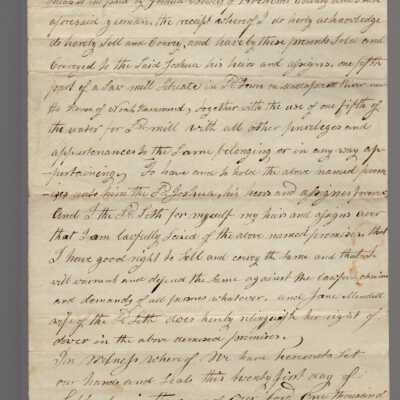 in paid by Joshua County and
aforesaid yeoman, the receipt whereof I do herby acknowledge
do hereby Sell and Convey, and have by these presents Sold and
Conveyed to the Said Joshua his heirs and assigns, one fifth
part of a Saw mill Situate in Sd Town on River near
the House of Noah Hammond, together with the use of one fifth of
the water for Sd mill with all other privileges and
appurtenances to the Same belonging or in any way ap-
pertaining, To have and to hold the above named prem
ises unto him the Sd Joshua, his heirs and assignes forever,
And I the Sd Seth for myself my heirs and assigns aver
that I am lawfully Seized of the above named premises, that
I have good right to Sell and convey the Same and that I
will warrant and defend the Same against the lawful claims
and demands of all persons whatever. and Jane Mendell
wife of the Sd Seth does hereby relinquish her right of
dower in the above demised premises,
In Witness where of We have hereunto Set
our hands and Seals this twenty first day of
in the year of Our Lord One thousand